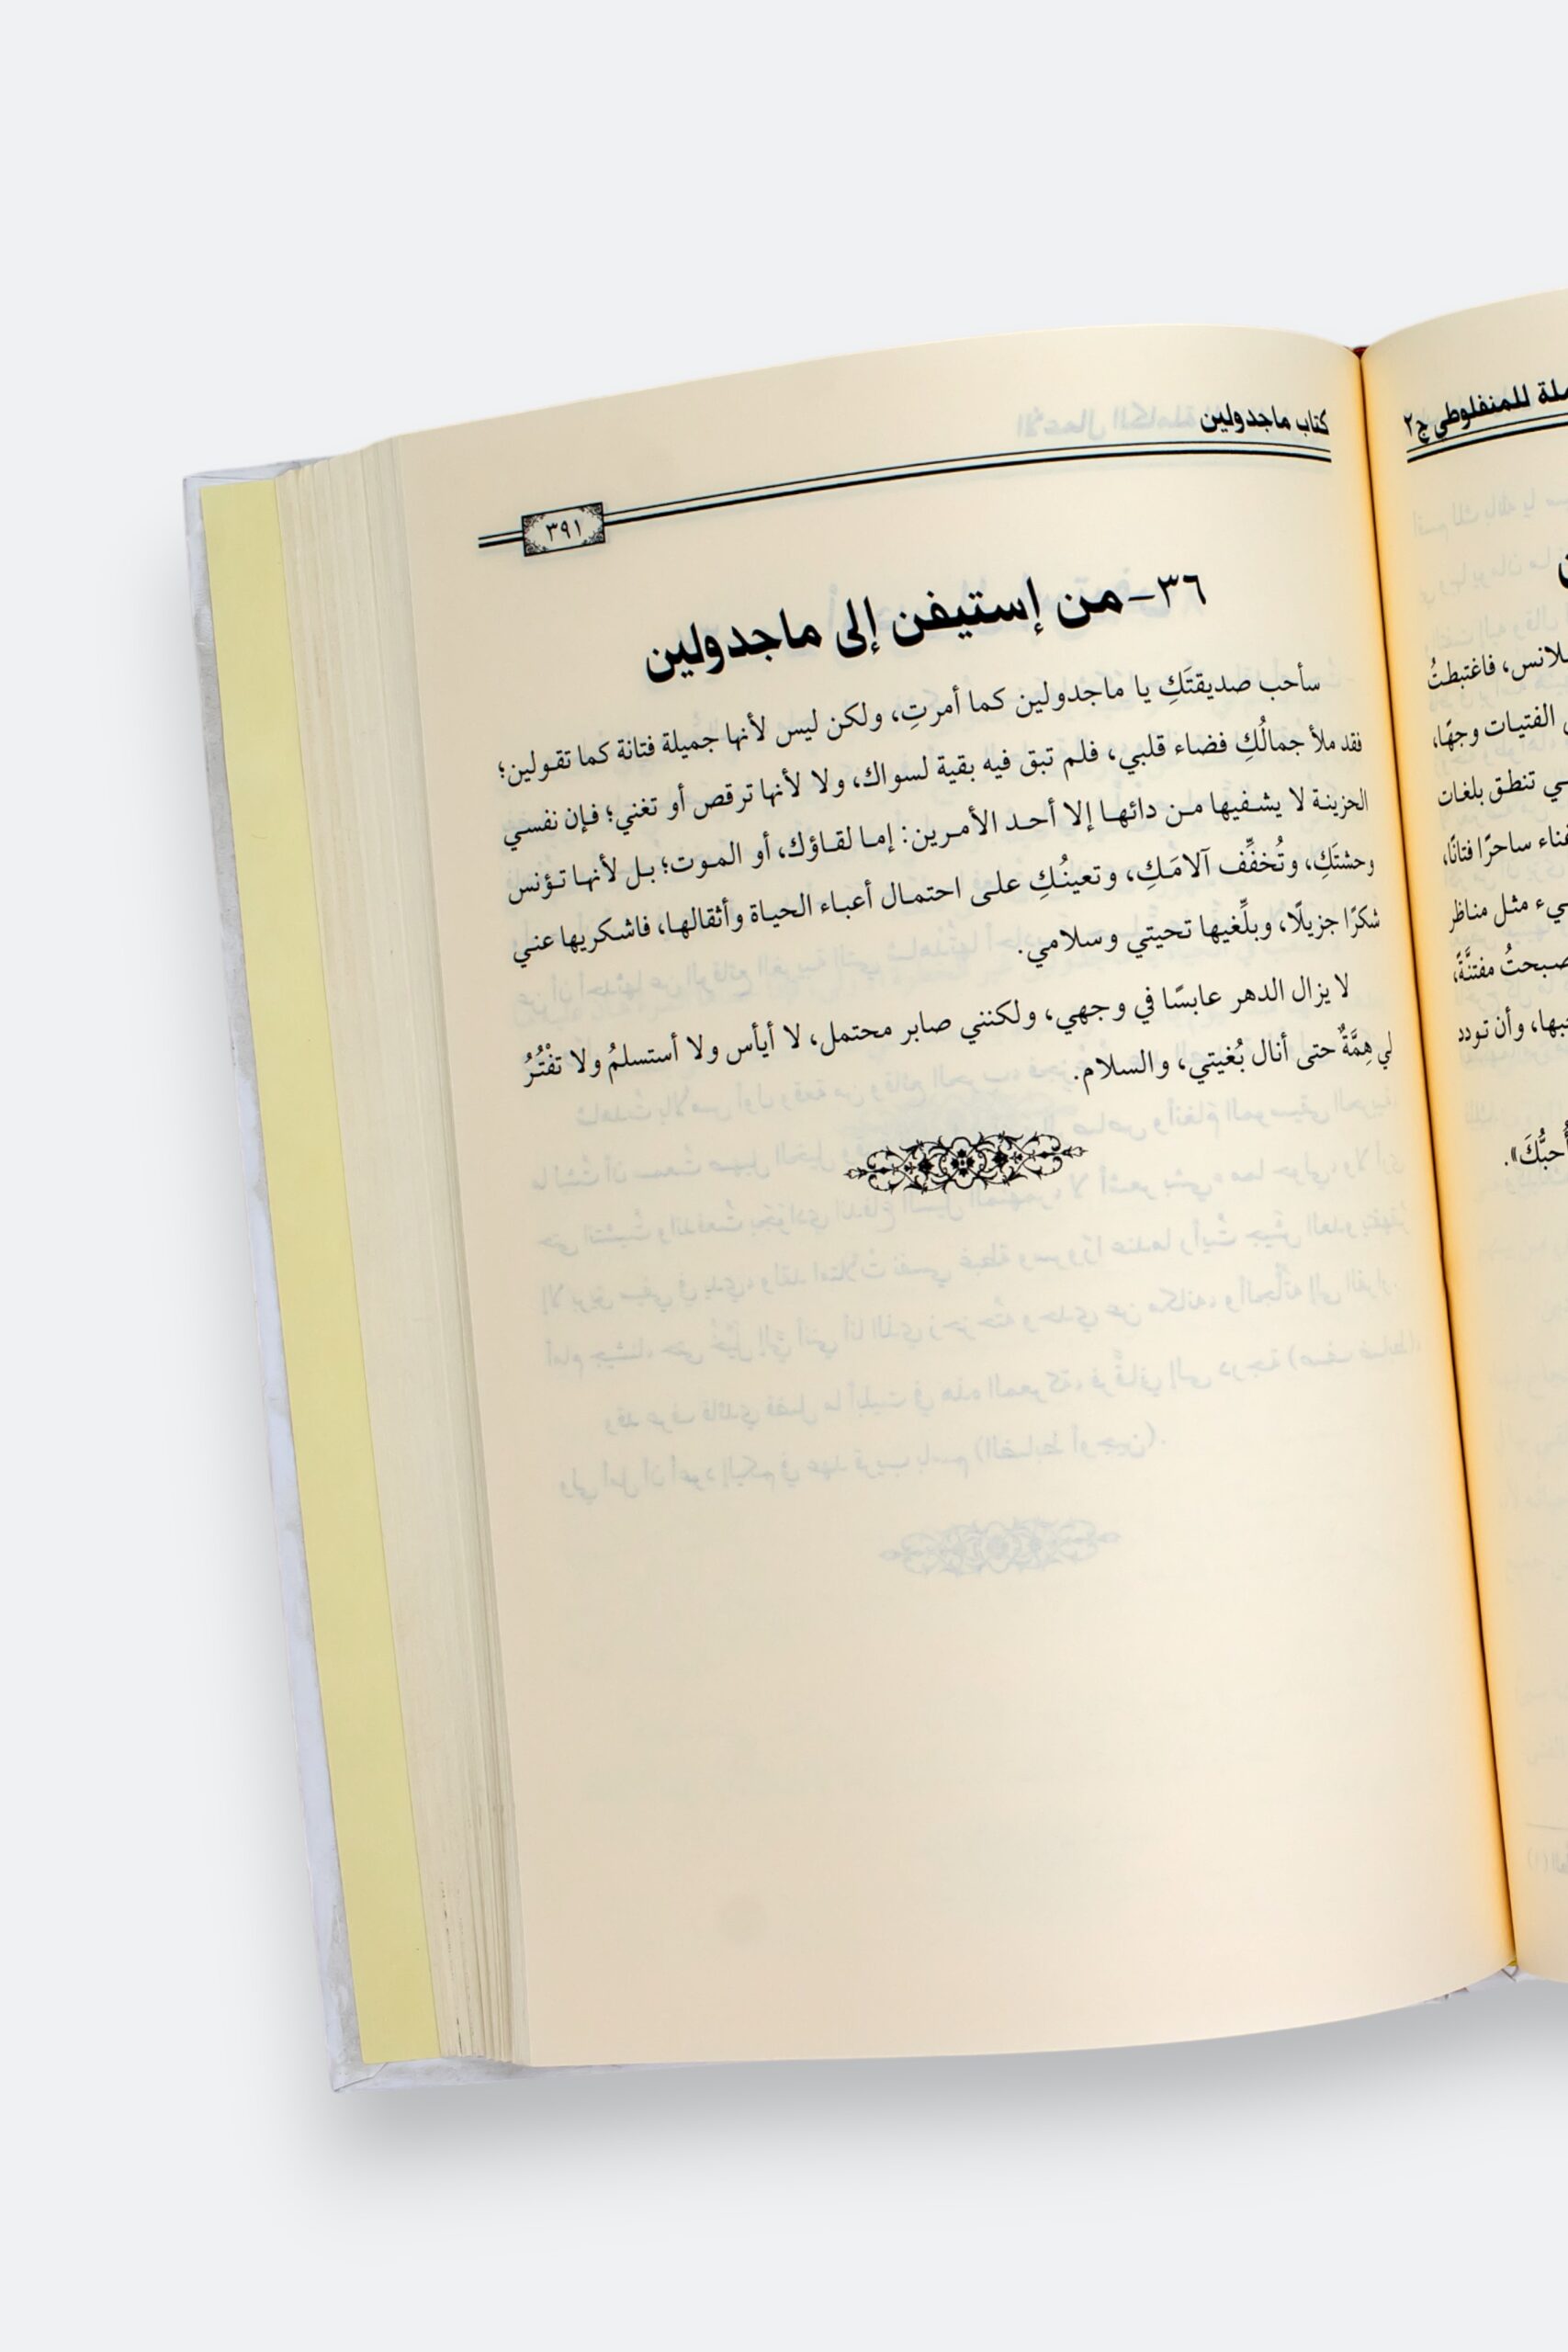 ملة للمنفلوطي ج٢
لانس، فاغتبطتُ
الفتيات وجهًا،
ـي تنطق بلغات
غناء ساحرًا فتانًا،
ـيء مثل مناظر
صبحتُ مفتنَّةً،
حبها، وأن تودد
أُحبُّكَ».
كتاب ماجدولين
٣٩١
٣٦- من إستيفن إلى ماجدولين
سأحب صديقتَكِ يا ماجدولين كما أمرتِ، ولكن ليس لأنها جميلة فتانة كما تقولين؛
فقد ملأ جمالُكِ فضاء قلبي، فلم تبق فيه بقية لسواك، ولا لأنها ترقص أو تغني؛ فإن نفسي
الحزينة لا يشفيها من دائها إلا أحد الأمرين: إما لقاؤك، أو الموت؛ بل لأنها تؤنس
وحشتَكِ، وتُخفِّف آلامَكِ، وتعينُكِ على احتمال أعباء الحياة وأثقالها، فاشكريها عني
شكرًا جزيلًا، وبلِّغيها تحيتي وسلامي.
لا يزال الدهر عابسًا في وجهي، ولكنني صابر محتمل، لا أيأس ولا أستسلمُ ولا تفْتُرُ
لي هِمَّةٌ حتى أنال بُغيتي، والسلام.